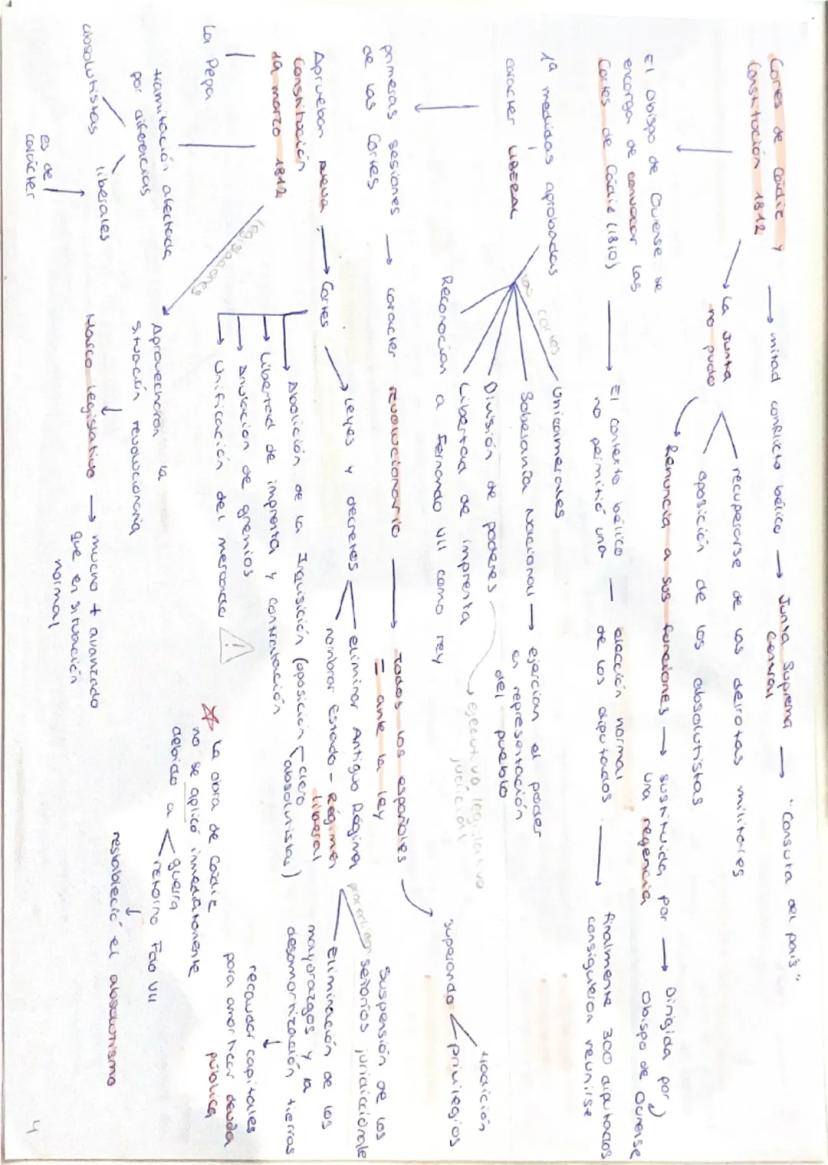 Cortes de Cádiz y
Constitución 1812
→ mitad conflicto bélico → Junta Suprema
Central
→ "Consulta del país"
→ La Junta
no pudo
recuperarse de las derrotas militares
oposición de los absolutistas
→ Renuncia a sus funciones → sustituida por
una regencia
→ Dirigida por
Obispo de Ourense
El obispo de Ourense se
encarga de convocar las
Cortes de Cádiz (1810)
→ El contexto bélico
no permitió una
— elección normal
de los diputados
→ finalmente 300 diputados
consiguieron reunirse
1ª medidas aprobadas
carácter LIBERAL
las cortes
Unicamerales
Soberanía Nacional → ejercían el poder
en representación
del pueblo
División de poderes
ejecutivo legislativo
judicial
Libertad de imprenta
Reconocían a Fernando VII como rey
primeras sesiones
de las Cortes
→ carácter revolucionario
→ todos los españoles
= ante la ley
superando
tradición
privilegios
Aprueban nueva
Constitución
19 marzo 1812
→ Cortes → Leyes y decretes
eliminar Antiguo Régimen
nombrar Estado - Régimen
liberal
Suspensión de los
señoríos jurídicciónale
Eliminación de los
mayorazgos y la
desamortización tierras
recaudar capitales
para amortizar deuda
pública
Abolición de la Inquisición (oposición clero
absolutista)
Libertad de imprenta y contratación
anulación de gremios
Unificación del mercado
La Pepa
legisladores
tramitación afectada
por diferencias
absolutistas
liberales
Aprovecharon la
situación revolucionaria
es de
carácter
Marco legislativo → mucho + avanzado
que en situación
normal
La obra de Cádiz
no se aplicó inmediatamente
debido a
guerra
retorno Fdo VII
restableció el absolutismo
4